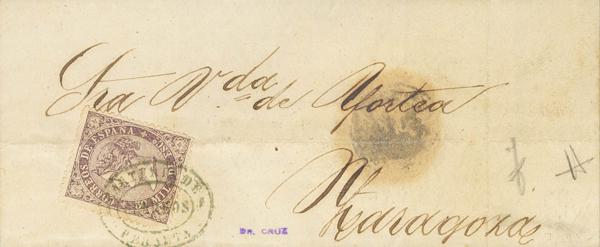 Sra V.da de Yortea
Zaragoza
CORREOS DE ESPAÑA
50 MIL.S DE E.
DR. CRUZ